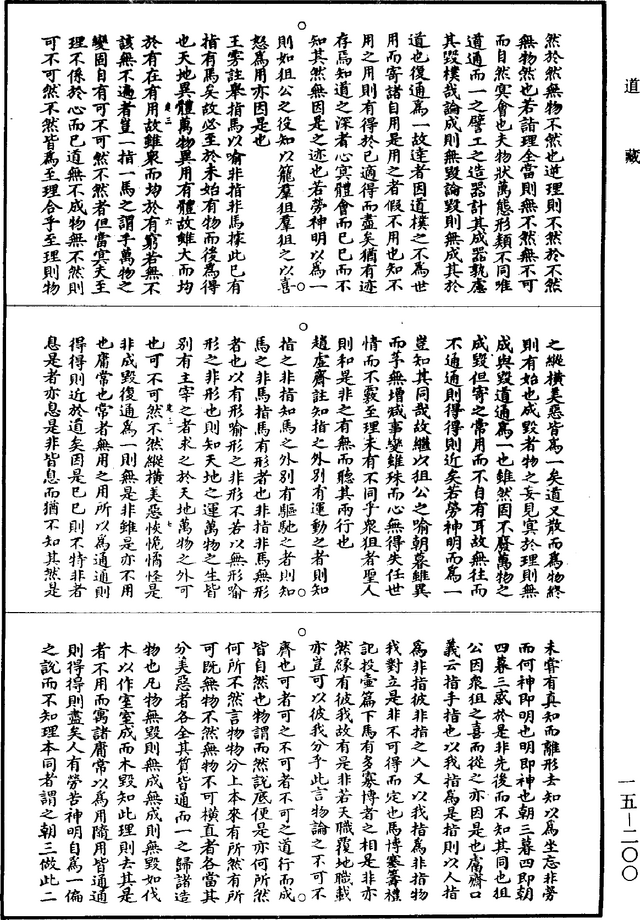 道藏
然於然無物不然也逆理則不然於不然
無物然也若詣理全當則無不然無不可
而自然冥會也夫物狀萬態形類不同唯
道通而一之譬工之造器計其成器孰慮
其毀樸哉論成則無毀論毀則無成其於
道也復通為一故達者因道樸之不為世
用而寄諸自用是用之者假不用也知不
用之用則有得於已適得而盡矣猶有迹
存焉知道之深者心冥體會而已已而不
知其然無因是之迹也若勞神明以為一
則如狙公之役知以籠羣狙羣狙之以喜
怒為用亦因是也
王雱註舉指馬以喻非指非馬據此已有
指有馬矣故必至於未始有物而後為得
也天地異體萬物異用有體故雖大而均
於有在有用故雖衆而均於有窮若無不
該無不遍者豈一指一馬之謂乎萬物之
變固自有可不可然不然者但當冥夫至
理不係於心而已道無不成物無不然則
可不可然不然皆為至理合乎至理則物
之縱橫美惡皆為一矣道又散而為物終
則有始也成毀者物之妄見冥於理則無
成與毀道通為一也雖然因不廢萬物之
成毀但寄之常用而不自有耳故無往而
不通通則得得則近矣若勞神明而為一
豈知其同哉故繼以狙公之喻朝暮雖異
而芋無增減事變雖殊而心無得失任世
情而不蔽至理未有不同乎衆狙者聖人
則和是非之有無而聽其兩行也
趙虛齋註知指之外別有運動之者則知
指之非指知馬之外別有驅馳之者則知
馬之非馬指馬有形者也非指非馬無形
者也以有形喻形之非形不若以無形喻
形之非形也則知天地之運萬物之生皆
別有主宰之者求之於天地萬物之外可
也可不可然不然縱橫美惡恢恑憰怪是
非成毀復通為一則無是非雖是亦不用
也庸常也常者無用之用所以為通通則
得得則近於道矣因是已已則不特非者
息是者亦息是非皆息而猶不知其然是
未嘗有真知而離形去知以為坐忘非勞
而何神即明也明即神也朝三暮四即朝
四暮三惑於是非先後而不知其同也狙
公因衆狙之喜而從之亦因是也鬳齋口
義云指手指也以我指為是指則以人指
為非指彼非指之人又以我指為非指物
我對立是非不可得而定也馬博塞籌禮
記投壺篇下馬有多寡博者之相是非亦
然緣有彼我故有是非若天職覆地職載
亦豈可以彼我分乎此言物論之不可不
齊也可者可之不可者不可之道行而成
皆自然也物謂而然說底便是亦何所然
何所不然言物物分上本來有所然有所
可既無物不然無物不可橫直者各當其
分美惡者各全其質皆通而一之歸諸造
物也凡物無毀則無成無成則無毀如伐
木以作室室成而木毀知此理則去其是
者不用而寓諸庸常以為用隨用皆通通
則得得則盡矣人有勞苦神明自為一偏
之說而不知理本同者謂之朝三做此二
一五—二〇〇